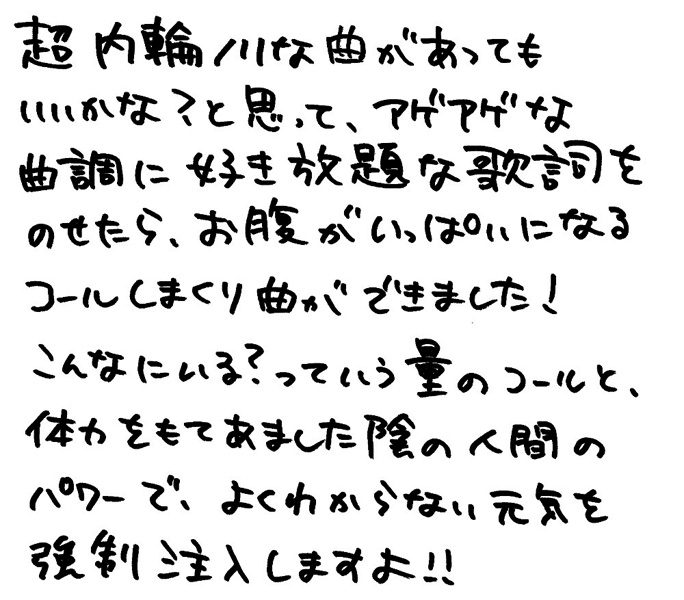 超内輪ノリな曲があっても
いいかな?と思って、アゲアゲな
曲調に好き放題な歌詞を
のせたら、お腹がいっぱいになる
コールしまくり曲ができました!
こんなにいる?っていう量のコールと、
体力をもてあました陰の人間の
パワーで、よくわからない元気を
強制注入しますよ!!